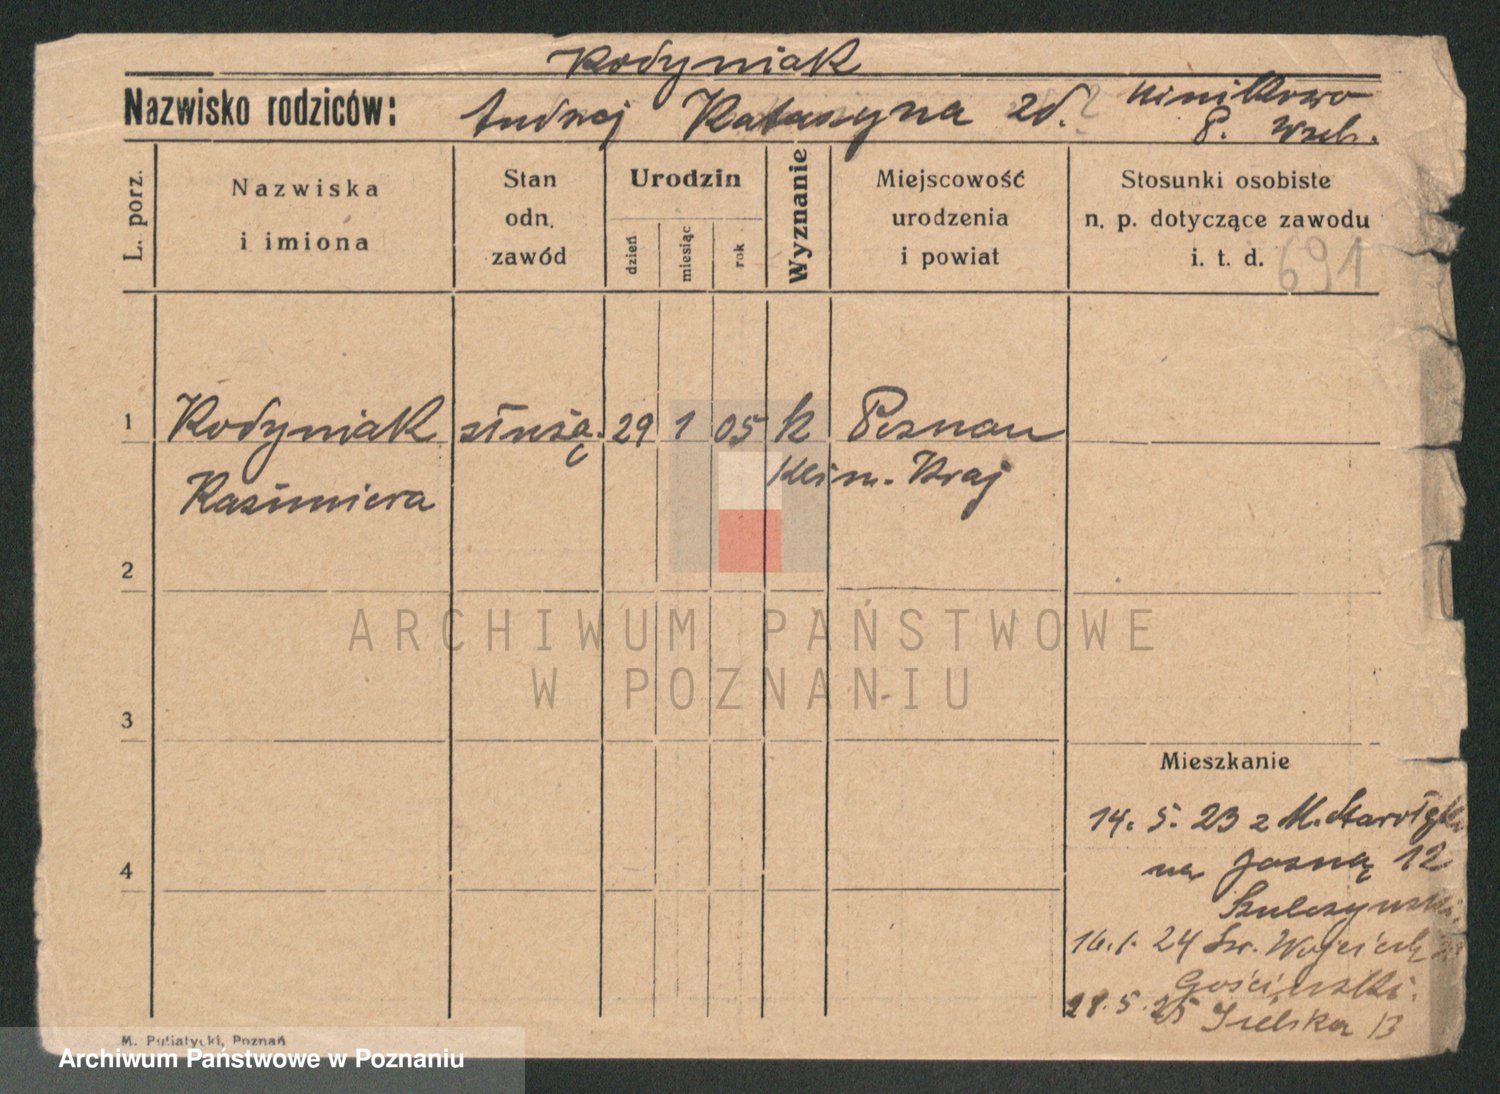 Rodyniak
Nazwisko rodziców: Andrzej Katarzyna zd.?
P. Wreb.
L. porz.
Nazwiska i imiona
Stan odn. zawód
Urodzin
dzień
miesiąc
rok
Wyznanie
Miejscowość urodzenia i powiat
Stosunki osobiste n. p. dotyczące zawodu i. t. d.
691
1 Rodyniak służą. 29 1 05 k Poznań
Kazimiera Kraj
2
3
4
Mieszkanie
14. 5. 23 z M. Starołęki
na Jasną 12
Szulczyński
16. 1. 24 Św. Wojciech
Gościński.
28. 5. 25 Sielska 13
ARCHIWUM PAŃSTWOWE
W POZNANIU
M. Putiatycki, Poznań
Archiwum Państwowe w Poznaniu